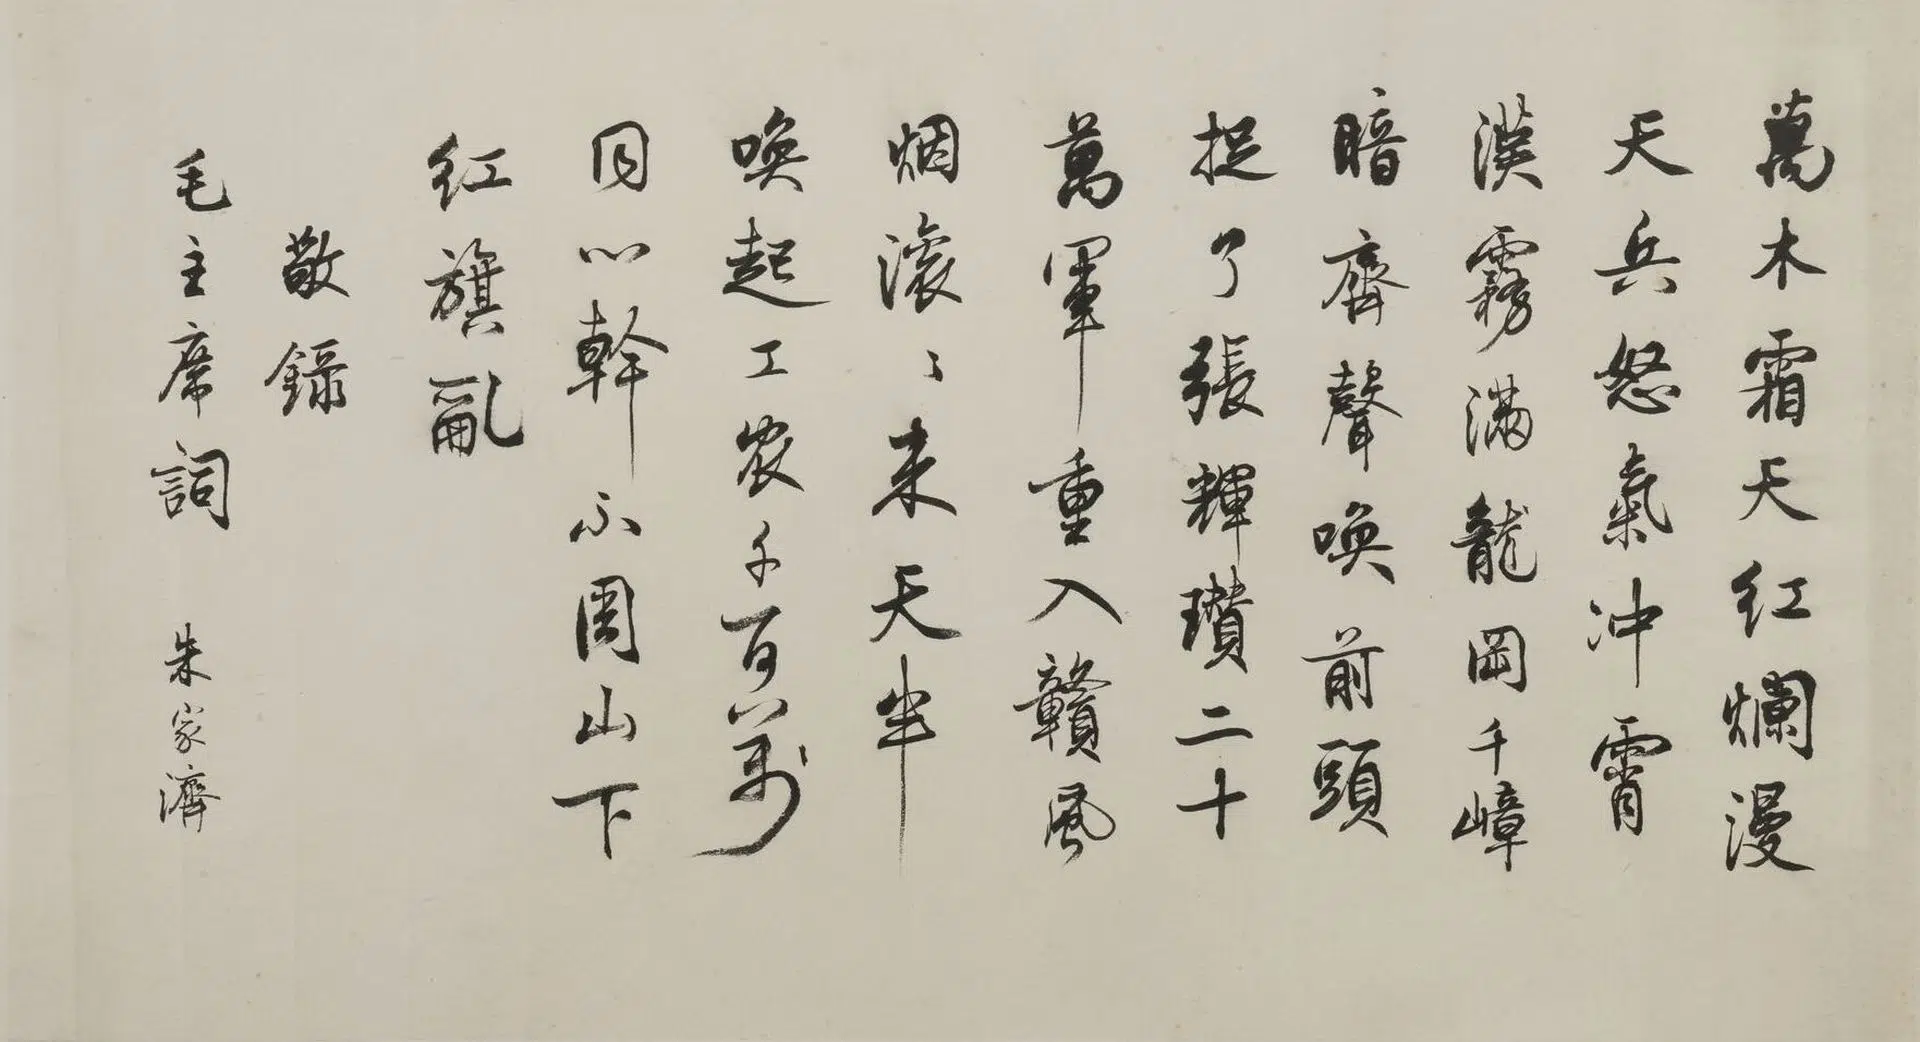 萬木霜天紅爛漫
天兵怒氣冲霄
漢霧滿龍岡千嶂
暗齊聲喚前頭
捉了張輝瓚二十
萬軍重入贛風
烟滾〻来天半
喚起工农千百万
同心幹不周山下
紅旗亂
敬錄
毛主席詞 朱家濟